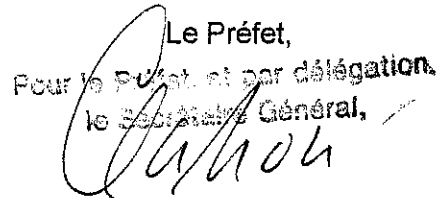 Le Préfet,
Pour le Préfet, et par délégation.
le Secrétaire Général,